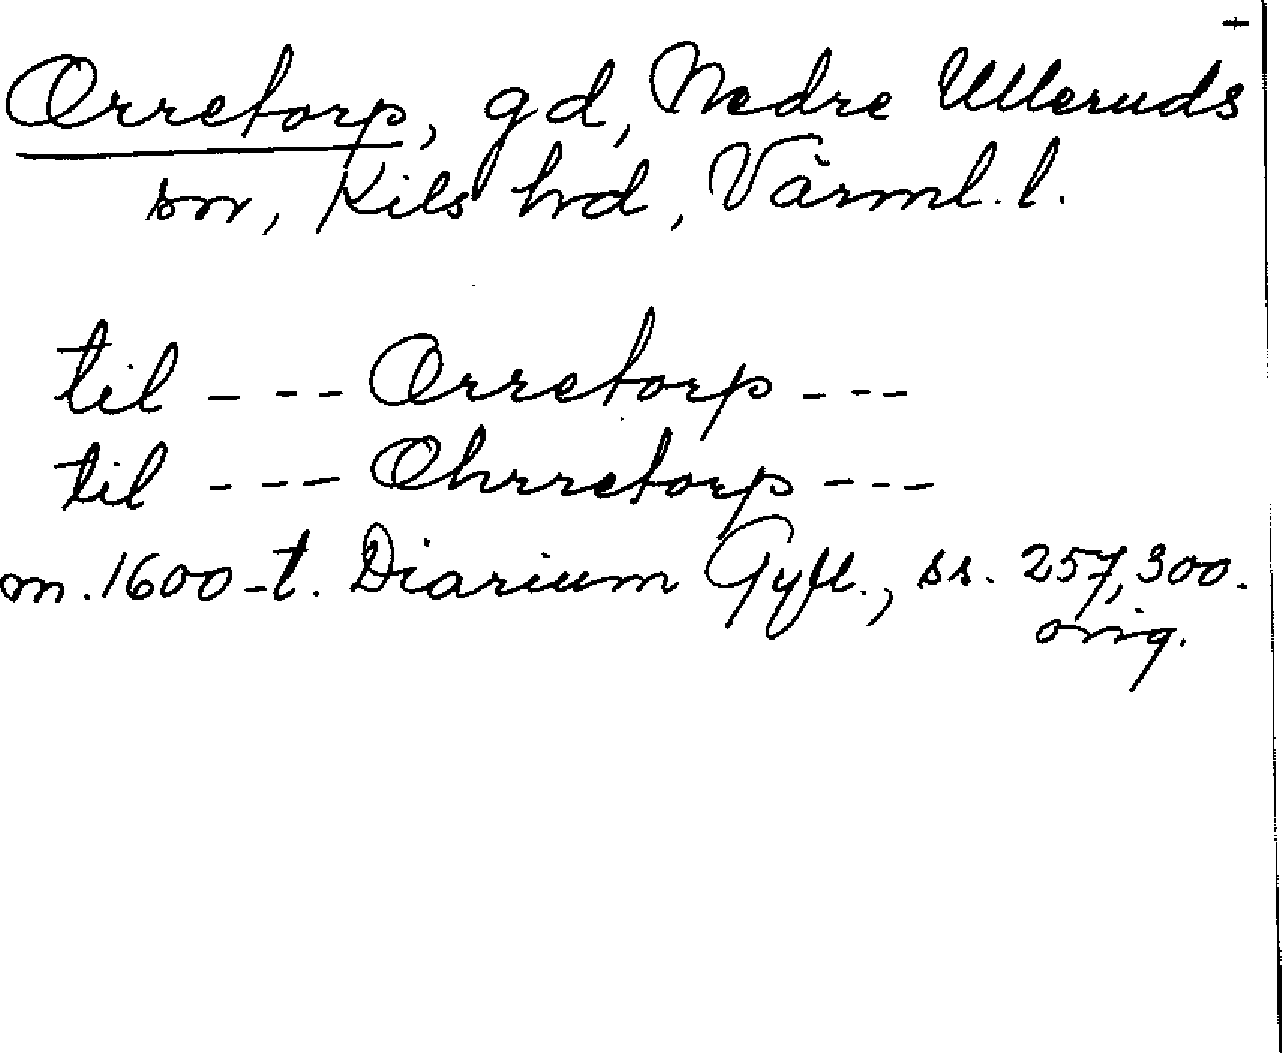 +
Orretorp, gd, Nedre Ulleruds
sn, Kils hd, Värml. l.
til - - - Orretorp - - -
til - - - Ohrretorp - - -
m. 1600-t. Diarium Gyll., ss. 257, 300.
orig.